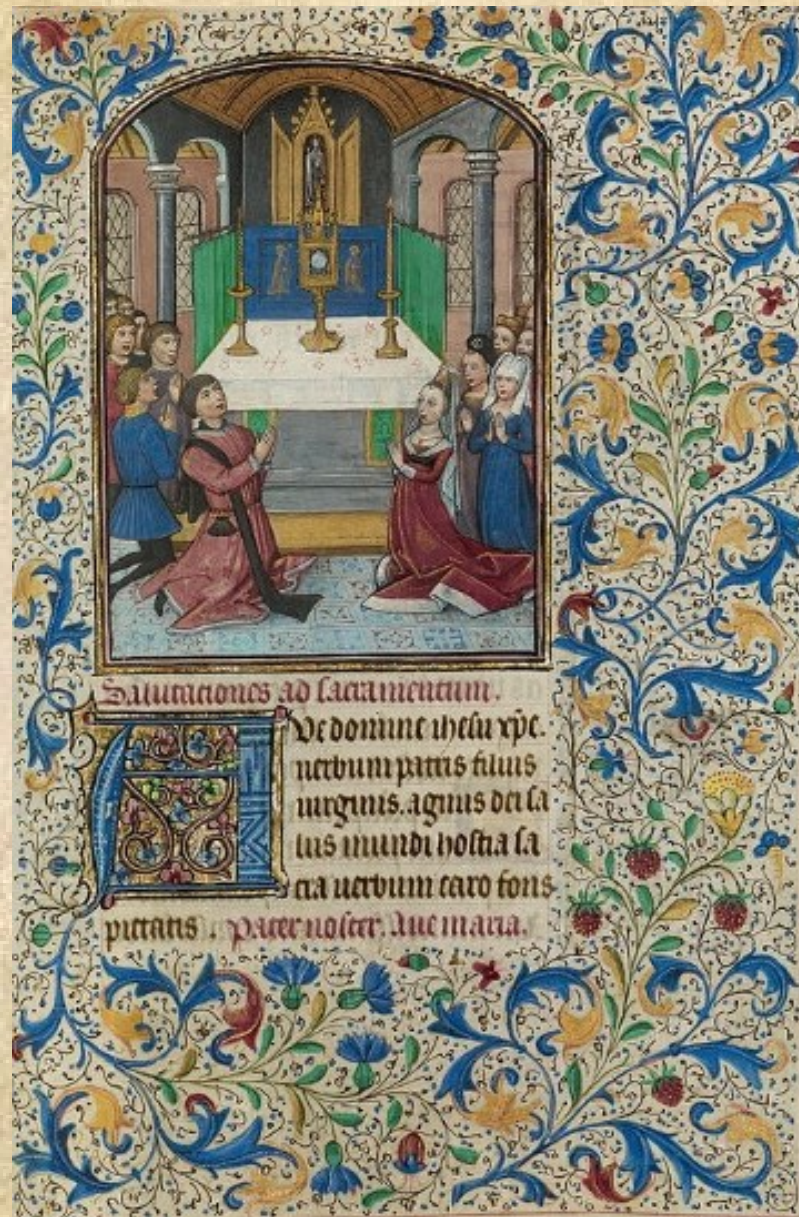 Salutaciones ad sacramentum.
Ave domine ihesu xpe.
uerbum patris filius
uirginis. agnus dei sa
lus mundi hostia sa
cra uerbum caro fons
pietatis. Pater noster. Aue maria.